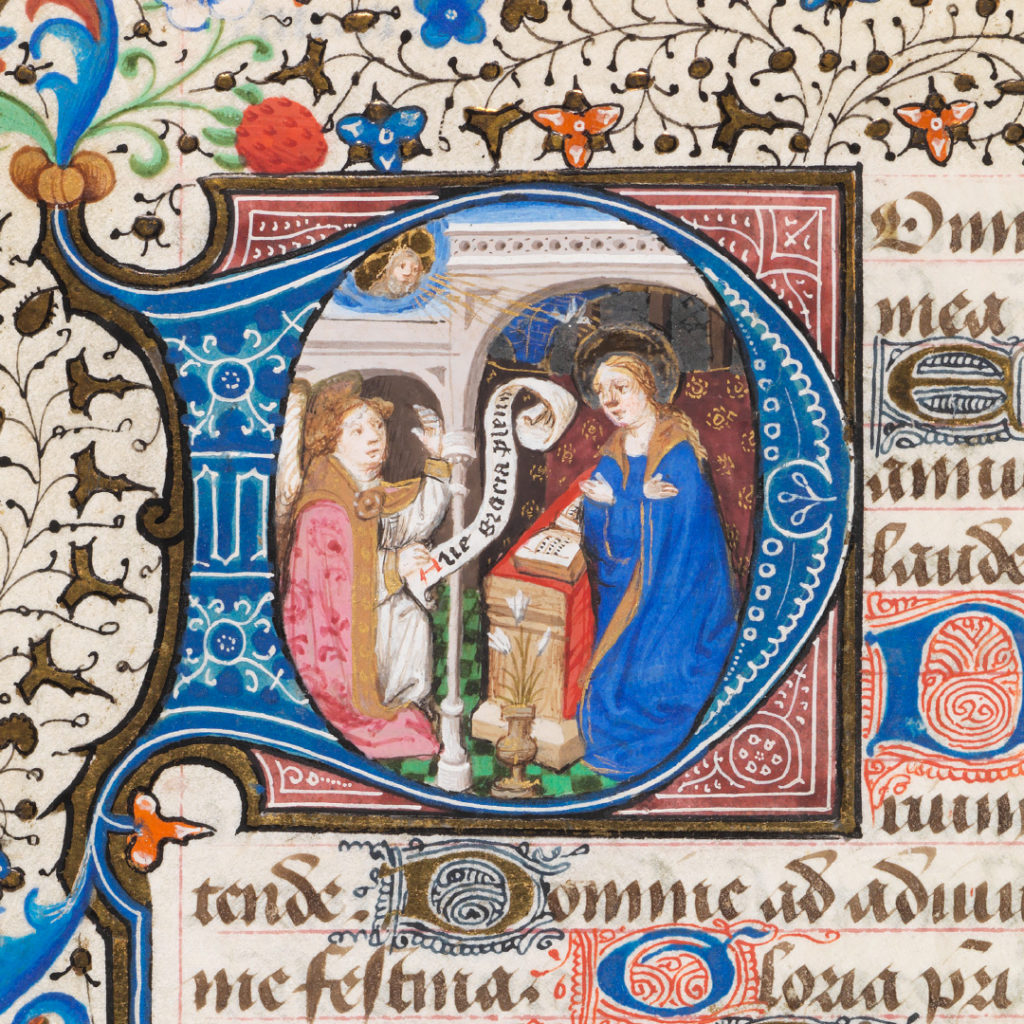 Aue gracia plena
Omi
mea
E
annu
laude
D
rium
tende. Domine ad adiuu
me festina. Gloria pri